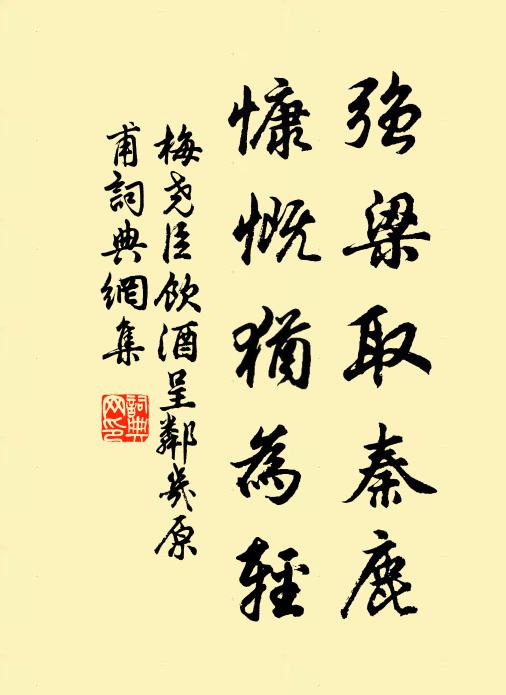 强梁取秦鹿
慷慨猶為輕
梅尧臣飲酒呈鄰幾原
甫詞典網集
詞典网印